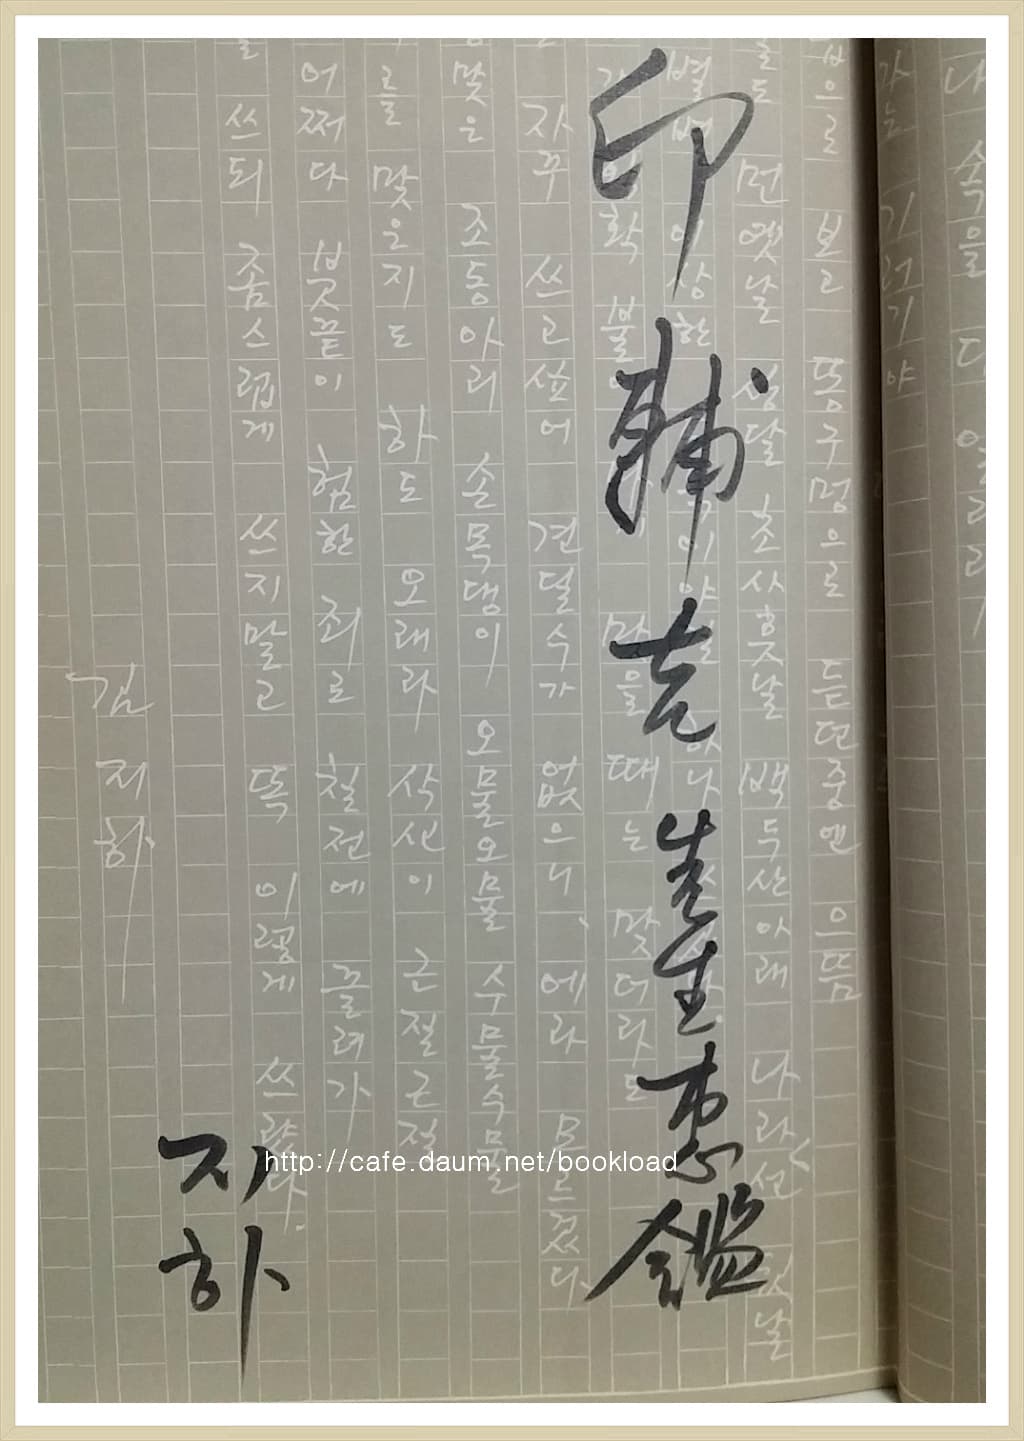 김지하
쓰되 좀스럽게 쓰지말고 똑 이렇게 쓰럇다.
어쩌다 붓끝이 험한 죄로 칠전에 끌려가
를 맞은지도 하도 오래라 삭신이 근질근질
맞은 조동아리 손목댕이 오물오물 수물수물
자꾸 쓰고싶어 견딜수가 없으니, 에라 모르겄다
확 불 맞을때는 맞더라도
별별 이상한 이야길 하나
먼옛날 상달 초사흣날 백두산아래 나라선 뒷날
으로 보고 똥구멍으로 듣던중엔 으뜸
가는 기러기야
속을 다
印輔先生惠鑑
지하
http://cafe.daum.net/bookload